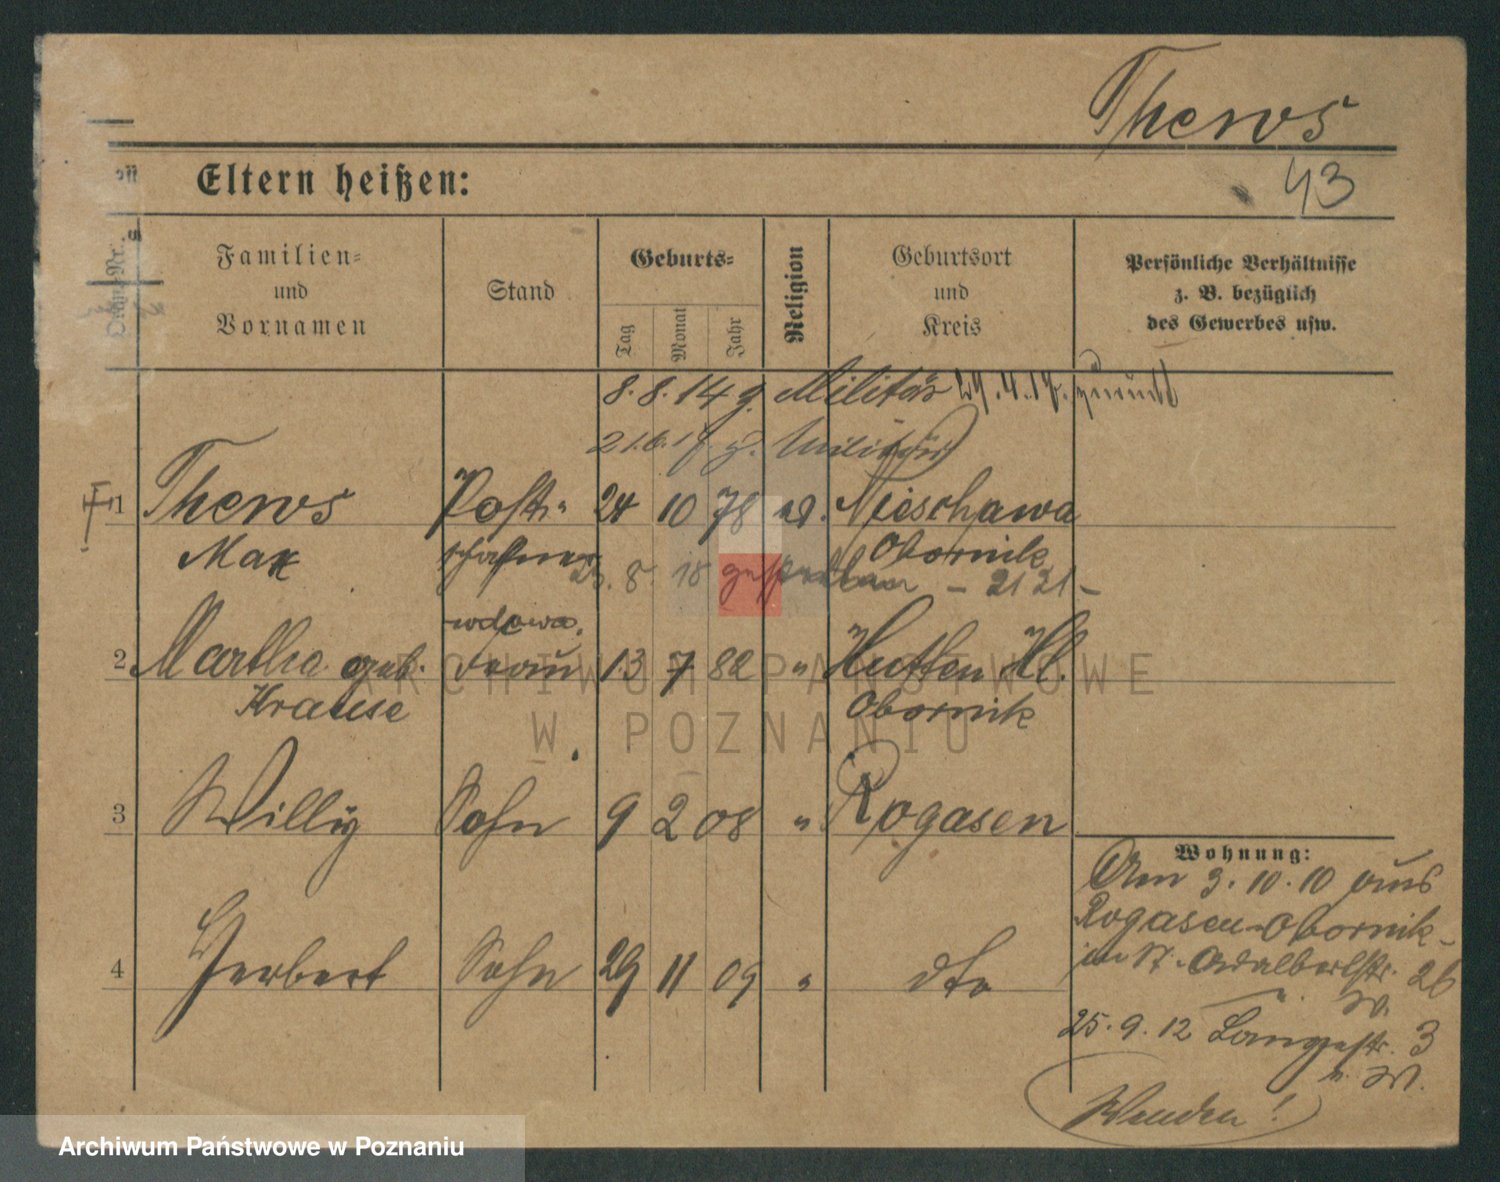 Thews
43
Eltern heißen:
Familien-
und
Vornamen
Stand
Geburts-
Tag
Monat
Jahr
Religion
Geburtsort
und
Kreis
Persönliche Verhältnisse
z. B. bezüglich
des Gewerbes usw.
8. 8. 14 g. Militär 29. 4. 17. zurück
21.6.17 z. Militär
1 Thews Post- 24 10 78 ev. Nieschawa
Max schaffner Obornik
23. 8. 18 gestorben – 2121 –
wdowa.
2 Martha geb. Frau 13 7 82 " Hutten Hl.
Krause Obornik
3 Willy Sohn 9 2 08 " Rogasen
4 Herbert Sohn 29 11 09 " dto
Wohnung:
Am 3. 10. 10 aus
Rogasen-Obornik-
in St. Adalbertstr. 26
25. 9. 12 Langestr. 3
Wenden!
ARCHIWUM PAŃSTWOWE
W POZNANIU
Archiwum Państwowe w Poznaniu